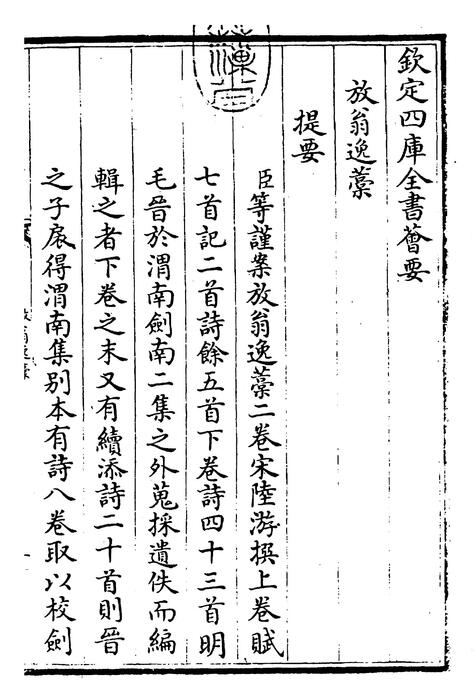 欽定四庫全書薈要
放翁逸藁
提要
臣等謹案放翁逸藁二卷宋陸游撰上卷賦
七首記二首詩餘五首下卷詩四十三首明
毛晉於渭南劍南二集之外蒐採遺佚而編
輯之者下卷之末又有續添詩二十首則晉
之子扆得渭南集别本有詩八卷取以校劍